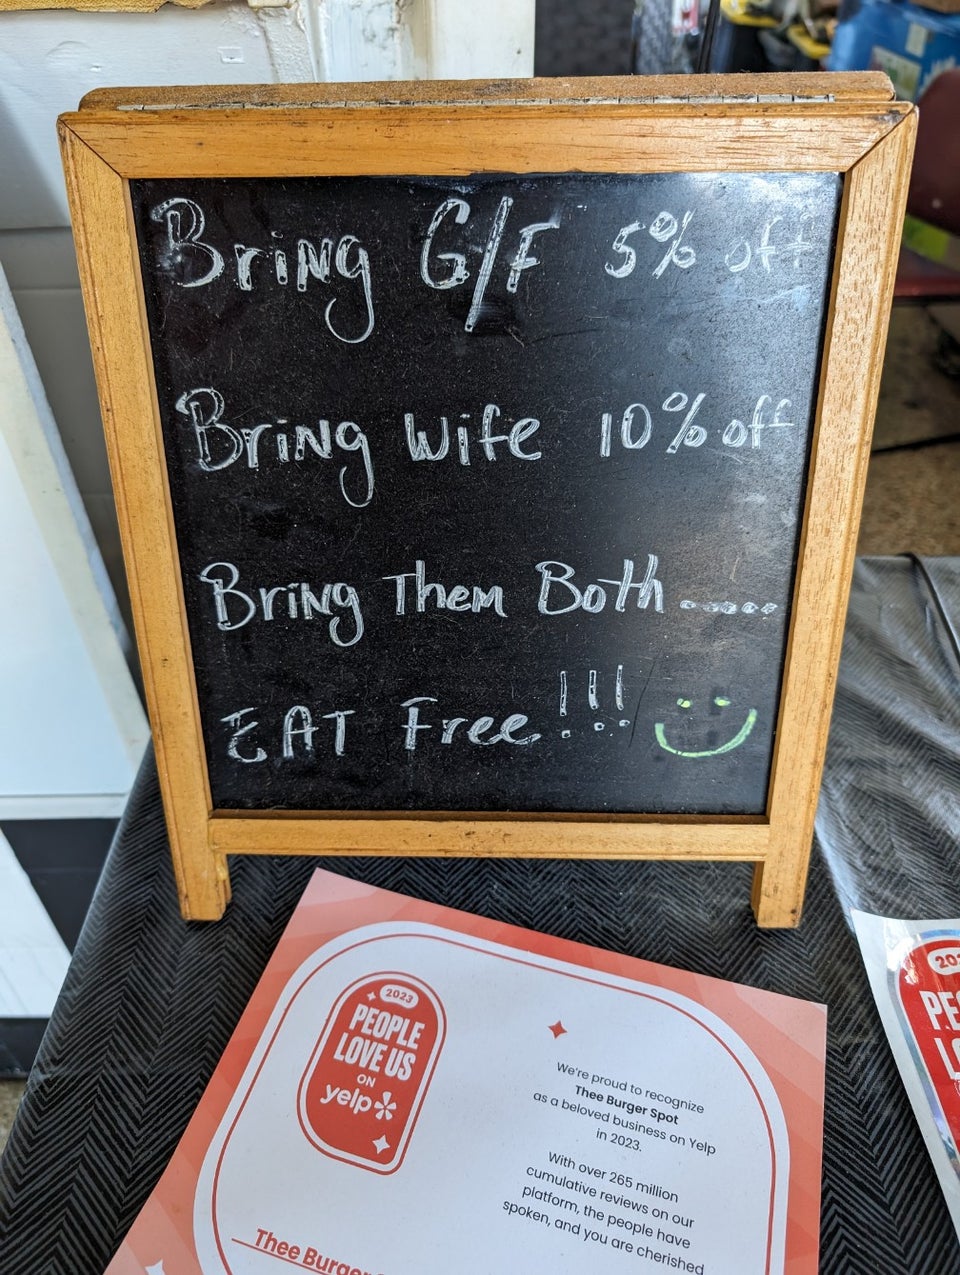 Bring G/F 5% off
Bring wife 10% off
Bring Them Both ......
EAT Free!!!
2023
PEOPLE
LOVE US
ON
yelp
We're proud to recognize
Thee Burger Spot
as a beloved business on Yelp
in 2023.
With over 265 million
cumulative reviews on our
platform, the people have
spoken, and you are cherished
Thee Burger